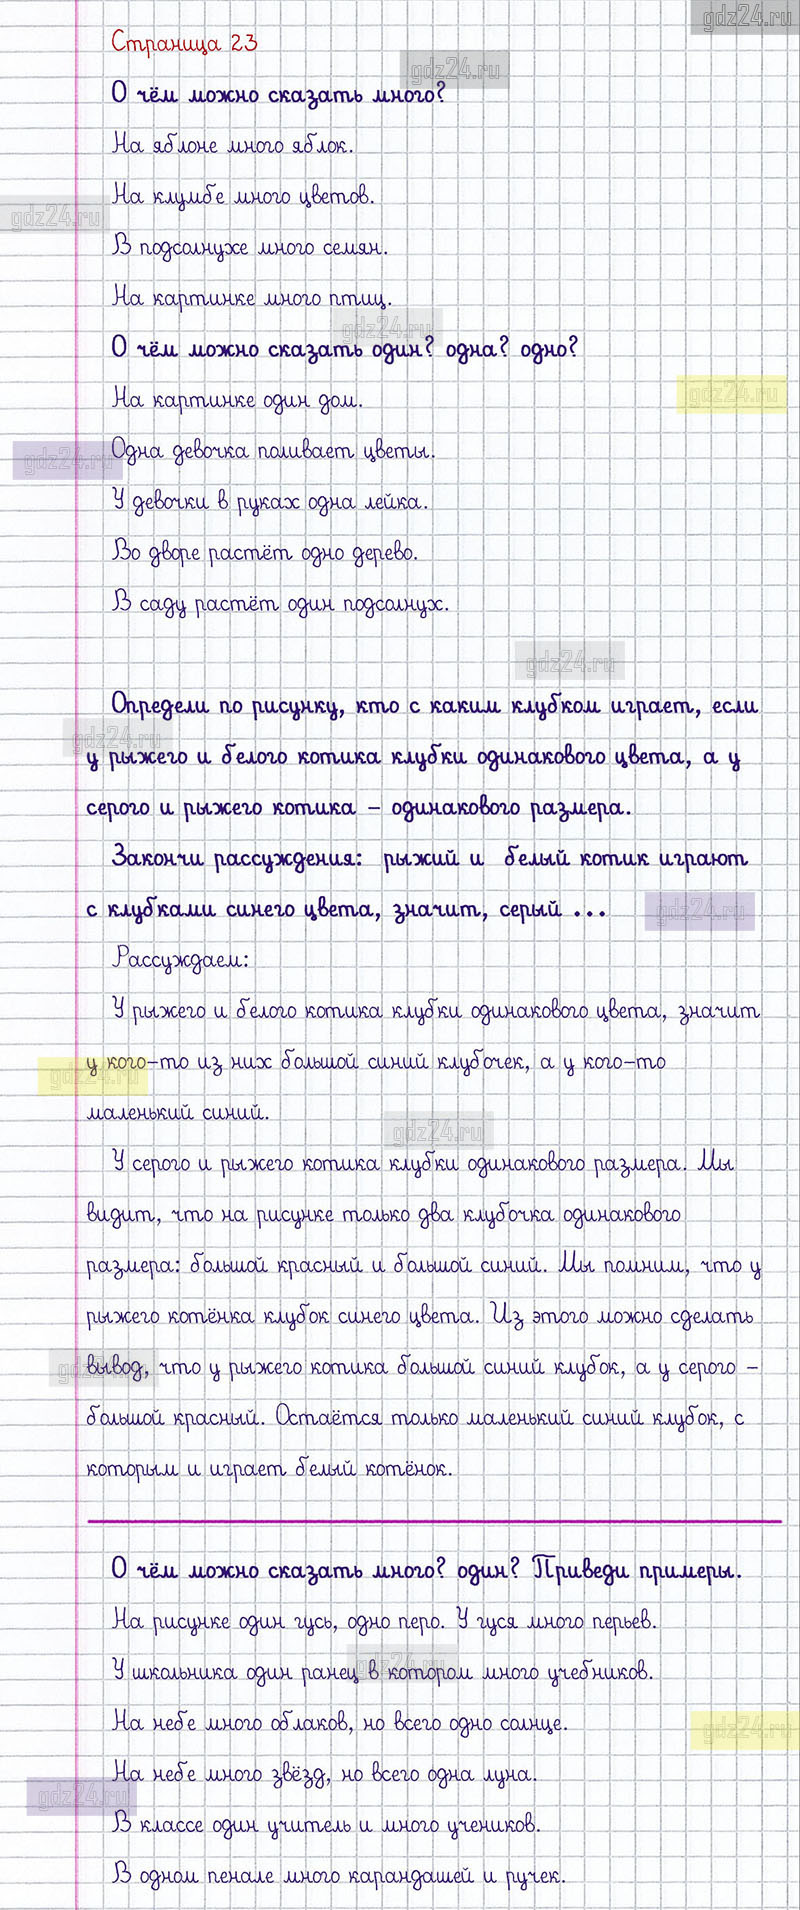 gdz24.ru
Страница 23
gdz24.ru
О чём можно сказать много?
На яблоне много яблок.
На клумбе много цветов.
gdz24.ru
В подсолнухе много семян.
На картинке много птиц.
gdz24.ru
О чём можно сказать один? одна? одно?
gdz24.ru
На картинке один дом.
Одна девочка поливает цветы.
gdz24.ru
У девочки в руках одна лейка.
Во дворе растёт одно дерево.
В саду растёт один подсолнух.
gdz24.ru
Определи по рисунку, кто с каким клубком играет, если
gdz24.ru
у рыжего и белого котика клубки одинакового цвета, а у
серого и рыжего котика – одинакового размера.
Закончи рассуждения: рыжий и белый котик играют
с клубками синего цвета, значит, серый ...
gdz24.ru
Рассуждаем:
У рыжего и белого котика клубки одинакового цвета, значит
у кого-то из них большой синий клубочек, а у кого-то
gdz24.ru
маленький синий.
gdz24.ru
У серого и рыжего котика клубки одинакового размера. Мы
видит, что на рисунке только два клубочка одинакового
размера: большой красный и большой синий. Мы помним, что у
рыжего котёнка клубок синего цвета. Из этого можно сделать
вывод, что у рыжего котика большой синий клубок, а у серого –
gdz24.ru
большой красный. Остаётся только маленький синий клубок, с
которым и играет белый котёнок.
О чём можно сказать много? один? Приведи примеры.
На рисунке один гусь, одно перо. У гуся много перьев.
gdz24.ru
У школьника один ранец в котором много учебников.
На небе много облаков, но всего одно солнце.
gdz24.ru
На небе много звёзд, но всего одна луна.
gdz24.ru
В классе один учитель и много учеников.
В одном пенале много карандашей и ручек.